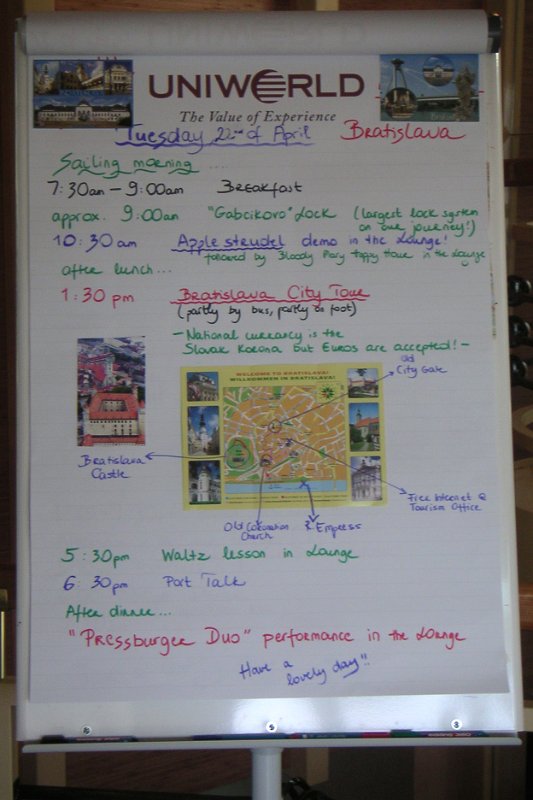 UNIWORLD
The Value of Experience
Tuesday 22nd of April Bratislava
Sailing morning ....
7:30am - 9:00am Breakfast
approx. 9:00am "Gabcikovo" Lock (largest lock system
on our journey!)
10:30am Apple strudel demo in the Lounge!
followed by Bloody Mary Happy Hour in the Lounge
after lunch...
1:30 pm Bratislava City Tour
(partly by bus, partly on foot)
- National currency is the
Slovak Korona but Euros are accepted! -
Old
City Gate
WELCOME TO BRATISLAVA!
WILLKOMMEN IN BRATISLAVA!
Bratislava
Castle
Free Internet @
Tourism Office
Old Coronation
Church
R. Empress
5:30pm Waltz lesson in Lounge
6:30pm Port Talk
After dinner...
"Pressburger Duo" performance in the Lounge
Have a
lovely day!!